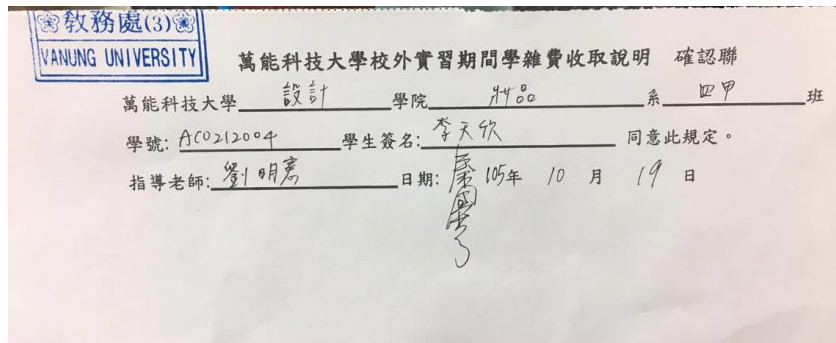 教務處(3)
VANUNG UNIVERSITY
萬能科技大學校外實習期間學雜費收取說明 確認聯
萬能科技大學 設計 學院 妝品 系 四甲 班
學號: AC0212004 學生簽名: 李天欣 同意此規定。
指導老師: 劉明憲 日期: 105年 10 月 19 日